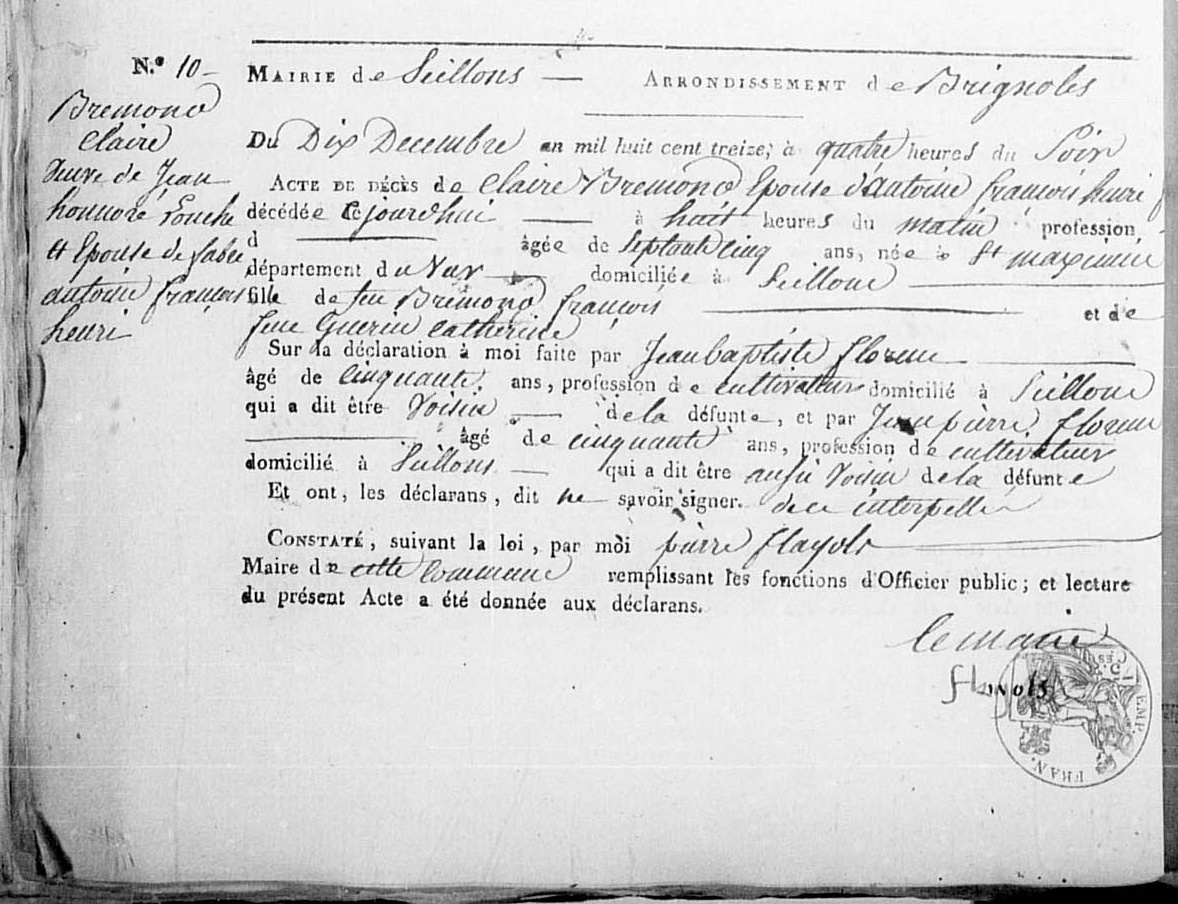 N.º 10
Bremond
Claire
Veuve de Jean
honnoré Fouche
et Epouse de fabre
antoine françois
henri
MAIRIE de Seillons — ARRONDISSEMENT de Brignoles
Du Dix Decembre an mil huit cent treize, à quatre heures du Soir
ACTE DE DÉCÈS de Claire Bremond Epouse d'antoine françois henri f
décédée Cejourdhui à huit heures du matin profession
d âgée de Septante cinq ans, née à St maximin
département du Var domiciliée à Seillons
fille de feu Bremond françois et de
feue Guerin catherine
Sur la déclaration à moi faite par Jean baptiste florens
âgé de cinquante ans, profession de cultivateur domicilié à Seillons
qui a dit être Voisin de la défunte, et par Jean pierre florens
âgé de cinquante ans, profession de cultivateur
domicilié à Seillons qui a dit être aussi Voisin de la défunte
Et ont, les déclarans, dit ne savoir signer. de ce interpellés
CONSTATÉ, suivant la loi, par moi pierre flayols
Maire de cette Commune remplissant les fonctions d'Officier public; et lecture
du présent Acte a été donnée aux déclarans.
le maire
flayols
EMP. FRAN.